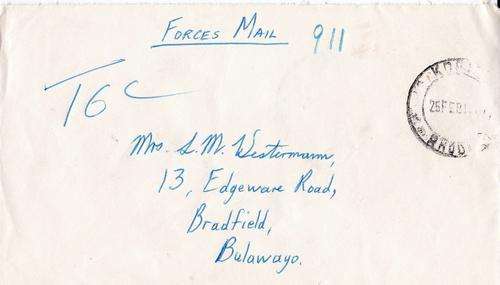 FORCES MAIL
911
T6C
25 FEB
Mrs. S. M. Westermann,
13, Edgeware Road,
Bradfield,
Bulawayo.